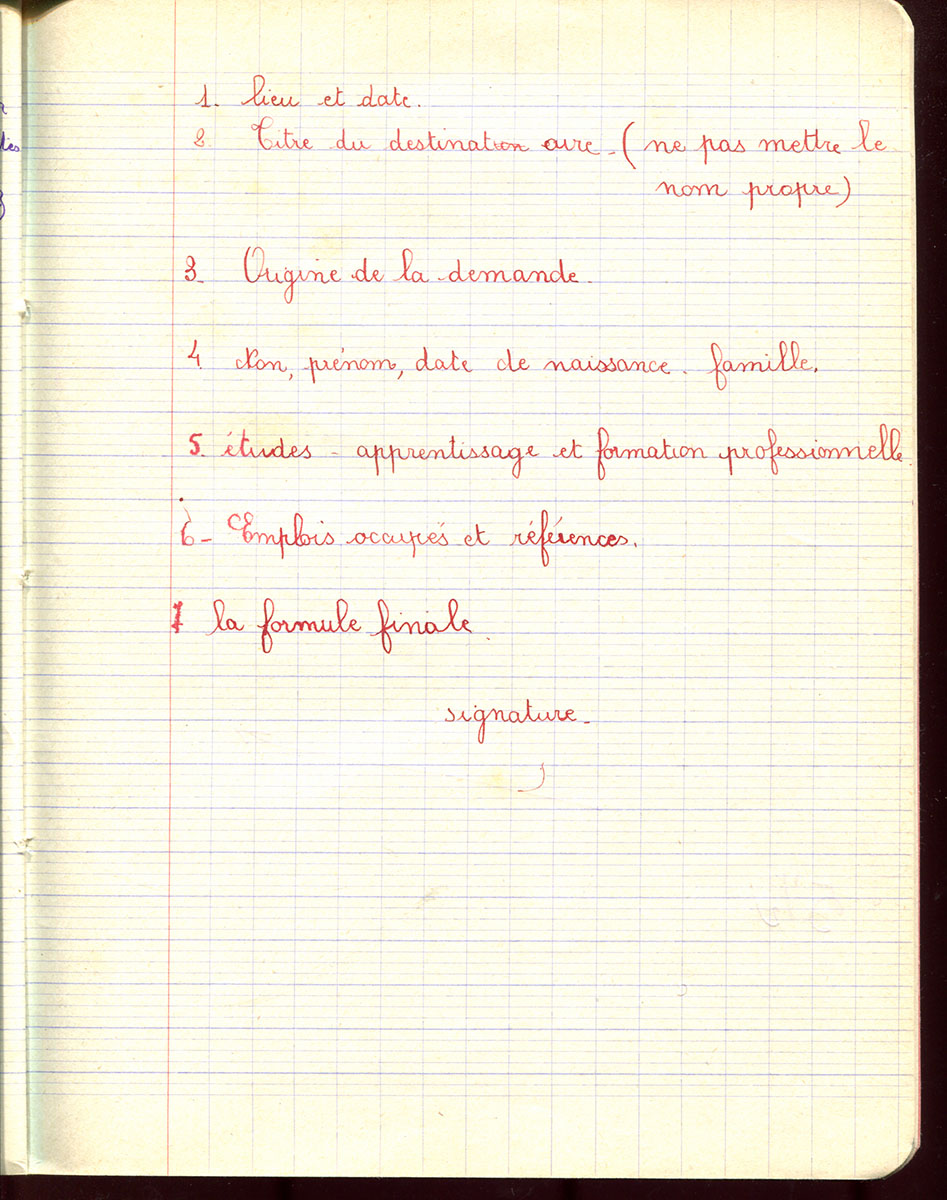 1. lieu et date.
2. Titre du destination aire - ( ne pas mettre le
nom propre)
3. Origine de la demande.
4. Nom, prénom, date de naissance. famille.
5. études - apprentissage et formation professionnelle.
6- Emplois occupés et références.
7 la formule finale.
signature.